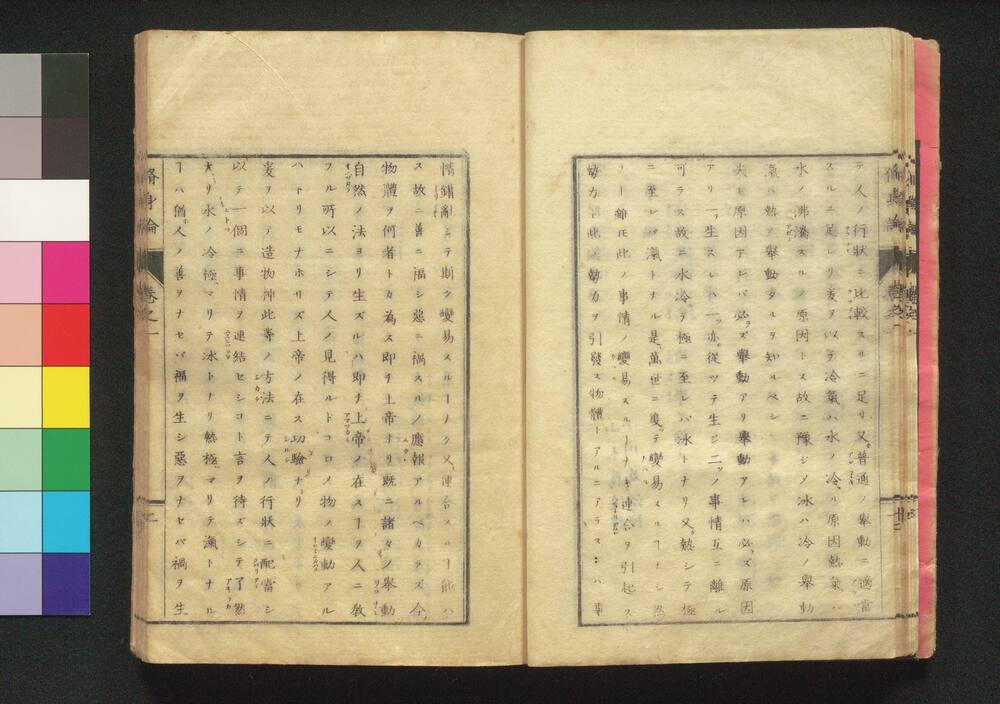 テ人ノ行狀ニ比較スルニ足リ又普通ノ舉動ニ適當
スルニ足レリ爰ヲ以テ冷氣ハ水ノ冷ル原因熱氣ハ
水ノ沸騰スルノ原因トス故ニ豫ジメ冰ハ冷ノ舉動
滊ハ熱ノ舉動タルヲ知ルベシ
夫レ原因アレバ必ズ舉動アリ舉動アレハ必ズ原因
アリ一ツ生スレハ一ツ亦從ツテ生ジ二ツノ事情互ニ離ル
可ラス故ニ水冷テ極ニ至レバ冰トナリ又熱シテ極
ニ至レバ滊トナル是萬世ニ度テ變易スルヿナシ然
リト雖𪜈此ノ事情ノ變易スルヿナキ連合ヲ引起ス
勢力ト此ノ勢力ヲ引發ス物體トアルニアラスンハ事
脩身論 卷之一 十二
情錯亂シテ斯ク變易スルヿナク又連合スルヿ能ハ
ス故ニ善ニ福シ惡ニ禍スルノ應報アルベカラズ今
物體ヲ何者トカ為ス即チ上帝ナリ既ニ諸々ノ舉動
自然ノ法ヨリ生ズルハ即チ上帝ノ在スヿヲ人ニ敎
フル所以ニシテ人ノ見得ルトコロノ物ノ變動アル
ハトリモナホサズ上帝ノ在ス功驗ナリ
爰ヲ以テ造物神此等ノ方法ニテ人ノ行狀ニ配當シ
以テ一個ニ事情ヲ連結セシコト言ヲ待ズシテ了然
タリ水ノ冷極マリテ冰トナリ熱極マリテ滊トナル
ヿハ猶人ノ善ヲナセバ福ヲ生シ惡ヲナセバ禍ヲ生
脩身論 卷之一